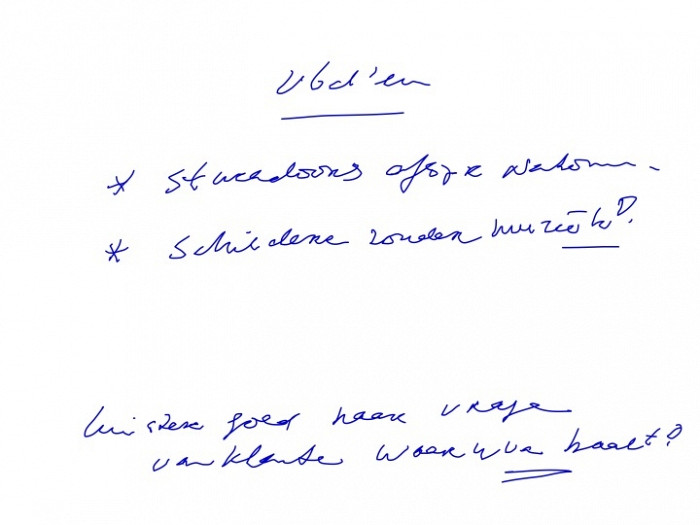 Vbd'en
* stucadoors afspr nakom.
* schilders zonder muziek?
luister goed naar vragen
van klanten waar